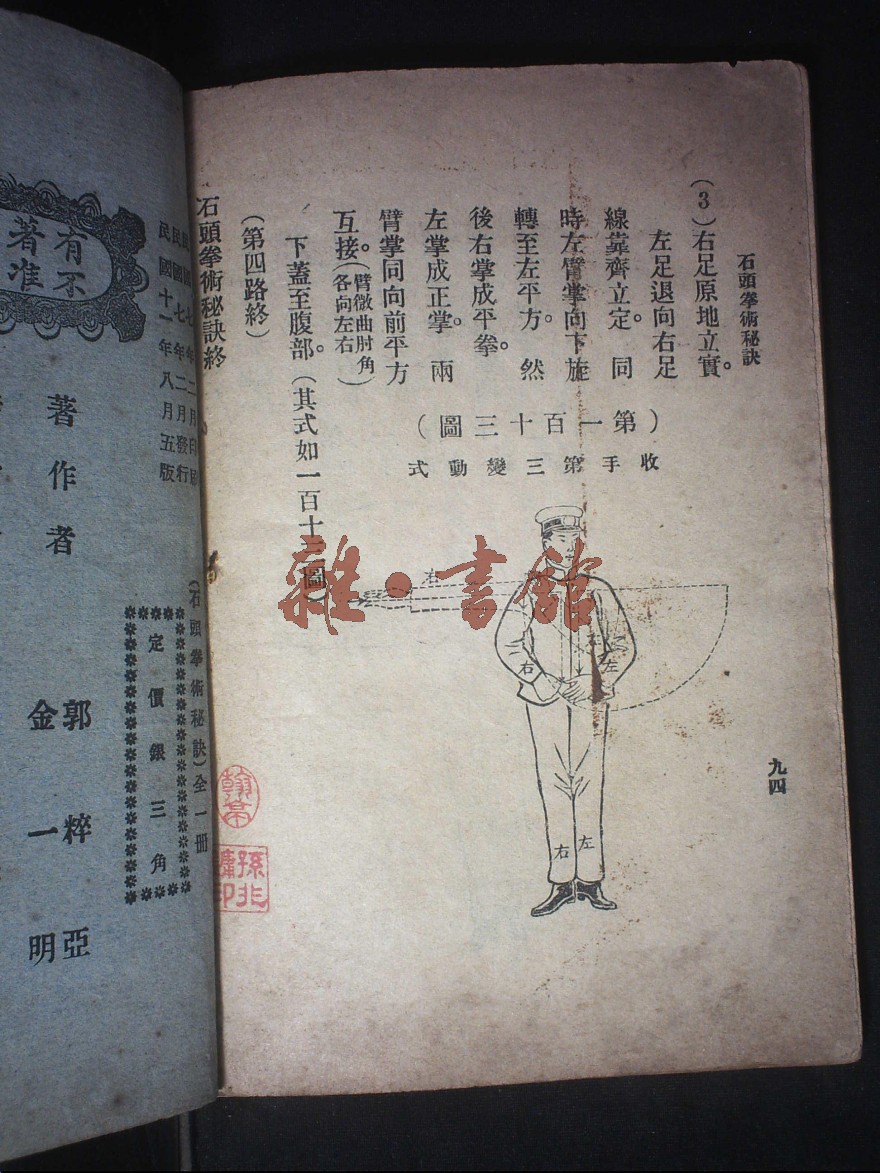 石頭拳術秘訣
(3)右足原地立實。
左足退向右足
線靠齊立定。同
時左臂掌向下旋
轉至左平方。然
後右掌成平拳。
左掌成正掌。兩
臂掌同向前平方
互接。(臂微曲肘角各向左右)
下蓋至腹部。(其式如一百十三圖)
(第四路終)
石頭拳術秘訣終
(第一百十三圖)
收手第三變動式
右
右
左
右
左
九四
雜·書館
翰亭
孫北
印
(石頭拳術秘訣)全一冊
定價銀三角
年二月印
民國七年二月發行
民國十一年八月五版
有不
著准
著作者
郭粹亞
金一明